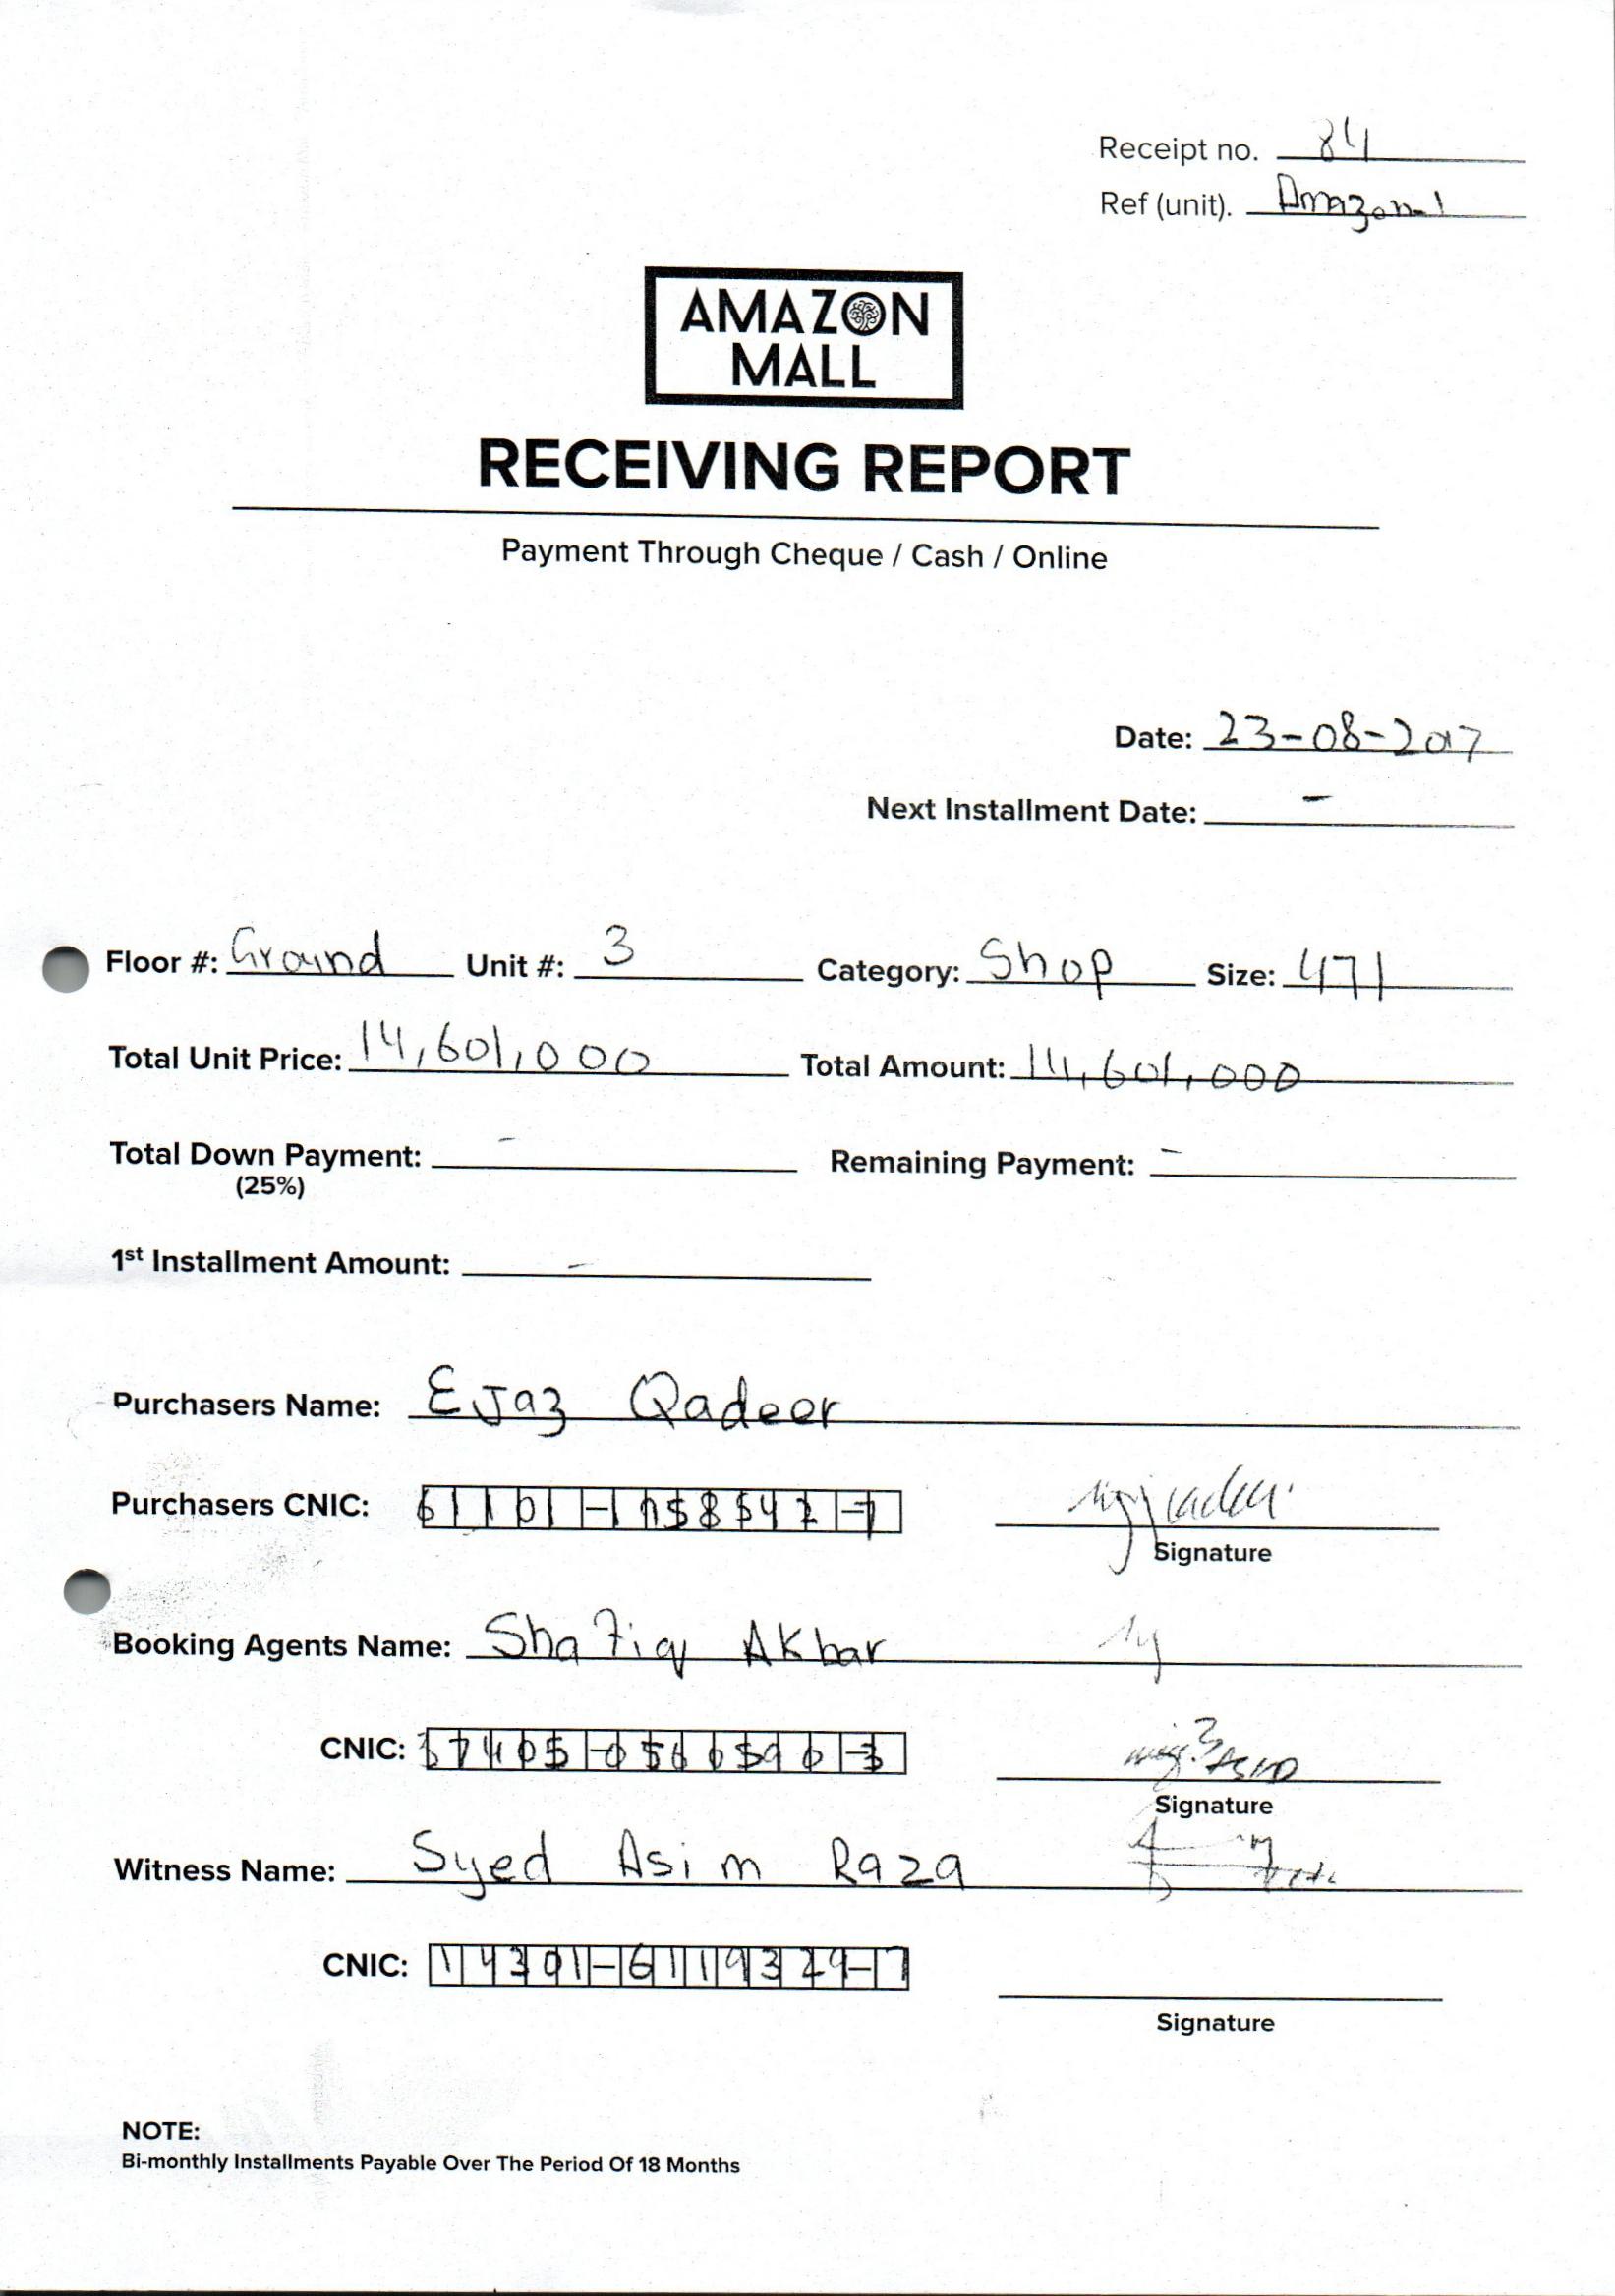 Receipt no. 84
Ref (unit). Amazon-1
AMAZON
MALL
RECEIVING REPORT
Payment Through Cheque / Cash / Online
Date: 23-08-2017
Next Installment Date: -
Floor #: Ground Unit #: 3 Category: Shop Size: 471
Total Unit Price: 14,601,000 Total Amount: 14,601,000
Total Down Payment: - Remaining Payment: -
(25%)
1st Installment Amount: -
Purchasers Name: Ejaz Qadeer
Purchasers CNIC:
Signature
Booking Agents Name: Shafiq Akbar
CNIC: 37405-0566596-3
Signature
Witness Name: Syed Asim Raza
CNIC: 14301-6119329-7
Signature
NOTE:
Bi-monthly Installments Payable Over The Period Of 18 Months